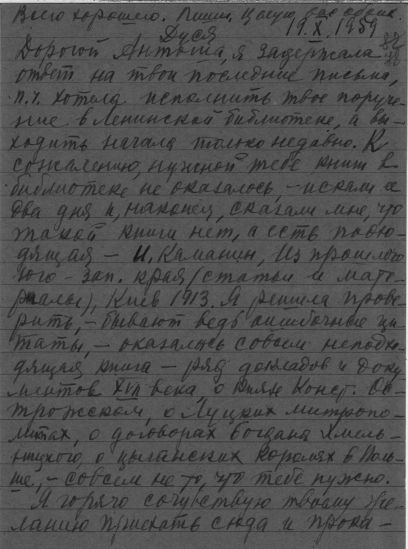 Всего хорошего. Пиши. Целую, всех
Дуся
19.X.1959
Дорогой Антоша, я задержала
ответ на твои последние письма,
п.ч. хотела исполнить твое поруче-
ние в Ленинской библиотеке, а вы-
ходить начала только недавно. К
сожалению, нужной тебе книги в
библиотеке не оказалось, – искали ее
два дня и, наконец, сказали мне, что
такой книги нет, а есть подхо-
дящая – И. Каманин, Из прошлого
юго-зап. края (статьи и мате-
риалы), Киев 1913. Я решила прове-
рить, – бывают ведь ошибочные ци-
таты, – оказалось совсем неподхо-
дящая книга – ряд докладов и доку
ментов XVII века, о князе Конст. Ос-
трожском, о Луцких митропо-
литах, о договорах Богдана Хмель-
ницкого, о цыганских королях в Поль-
ше, – совсем не то, что тебе нужно.
Я горячо сочувствую твоему же-
ланию приехать сюда и прока-